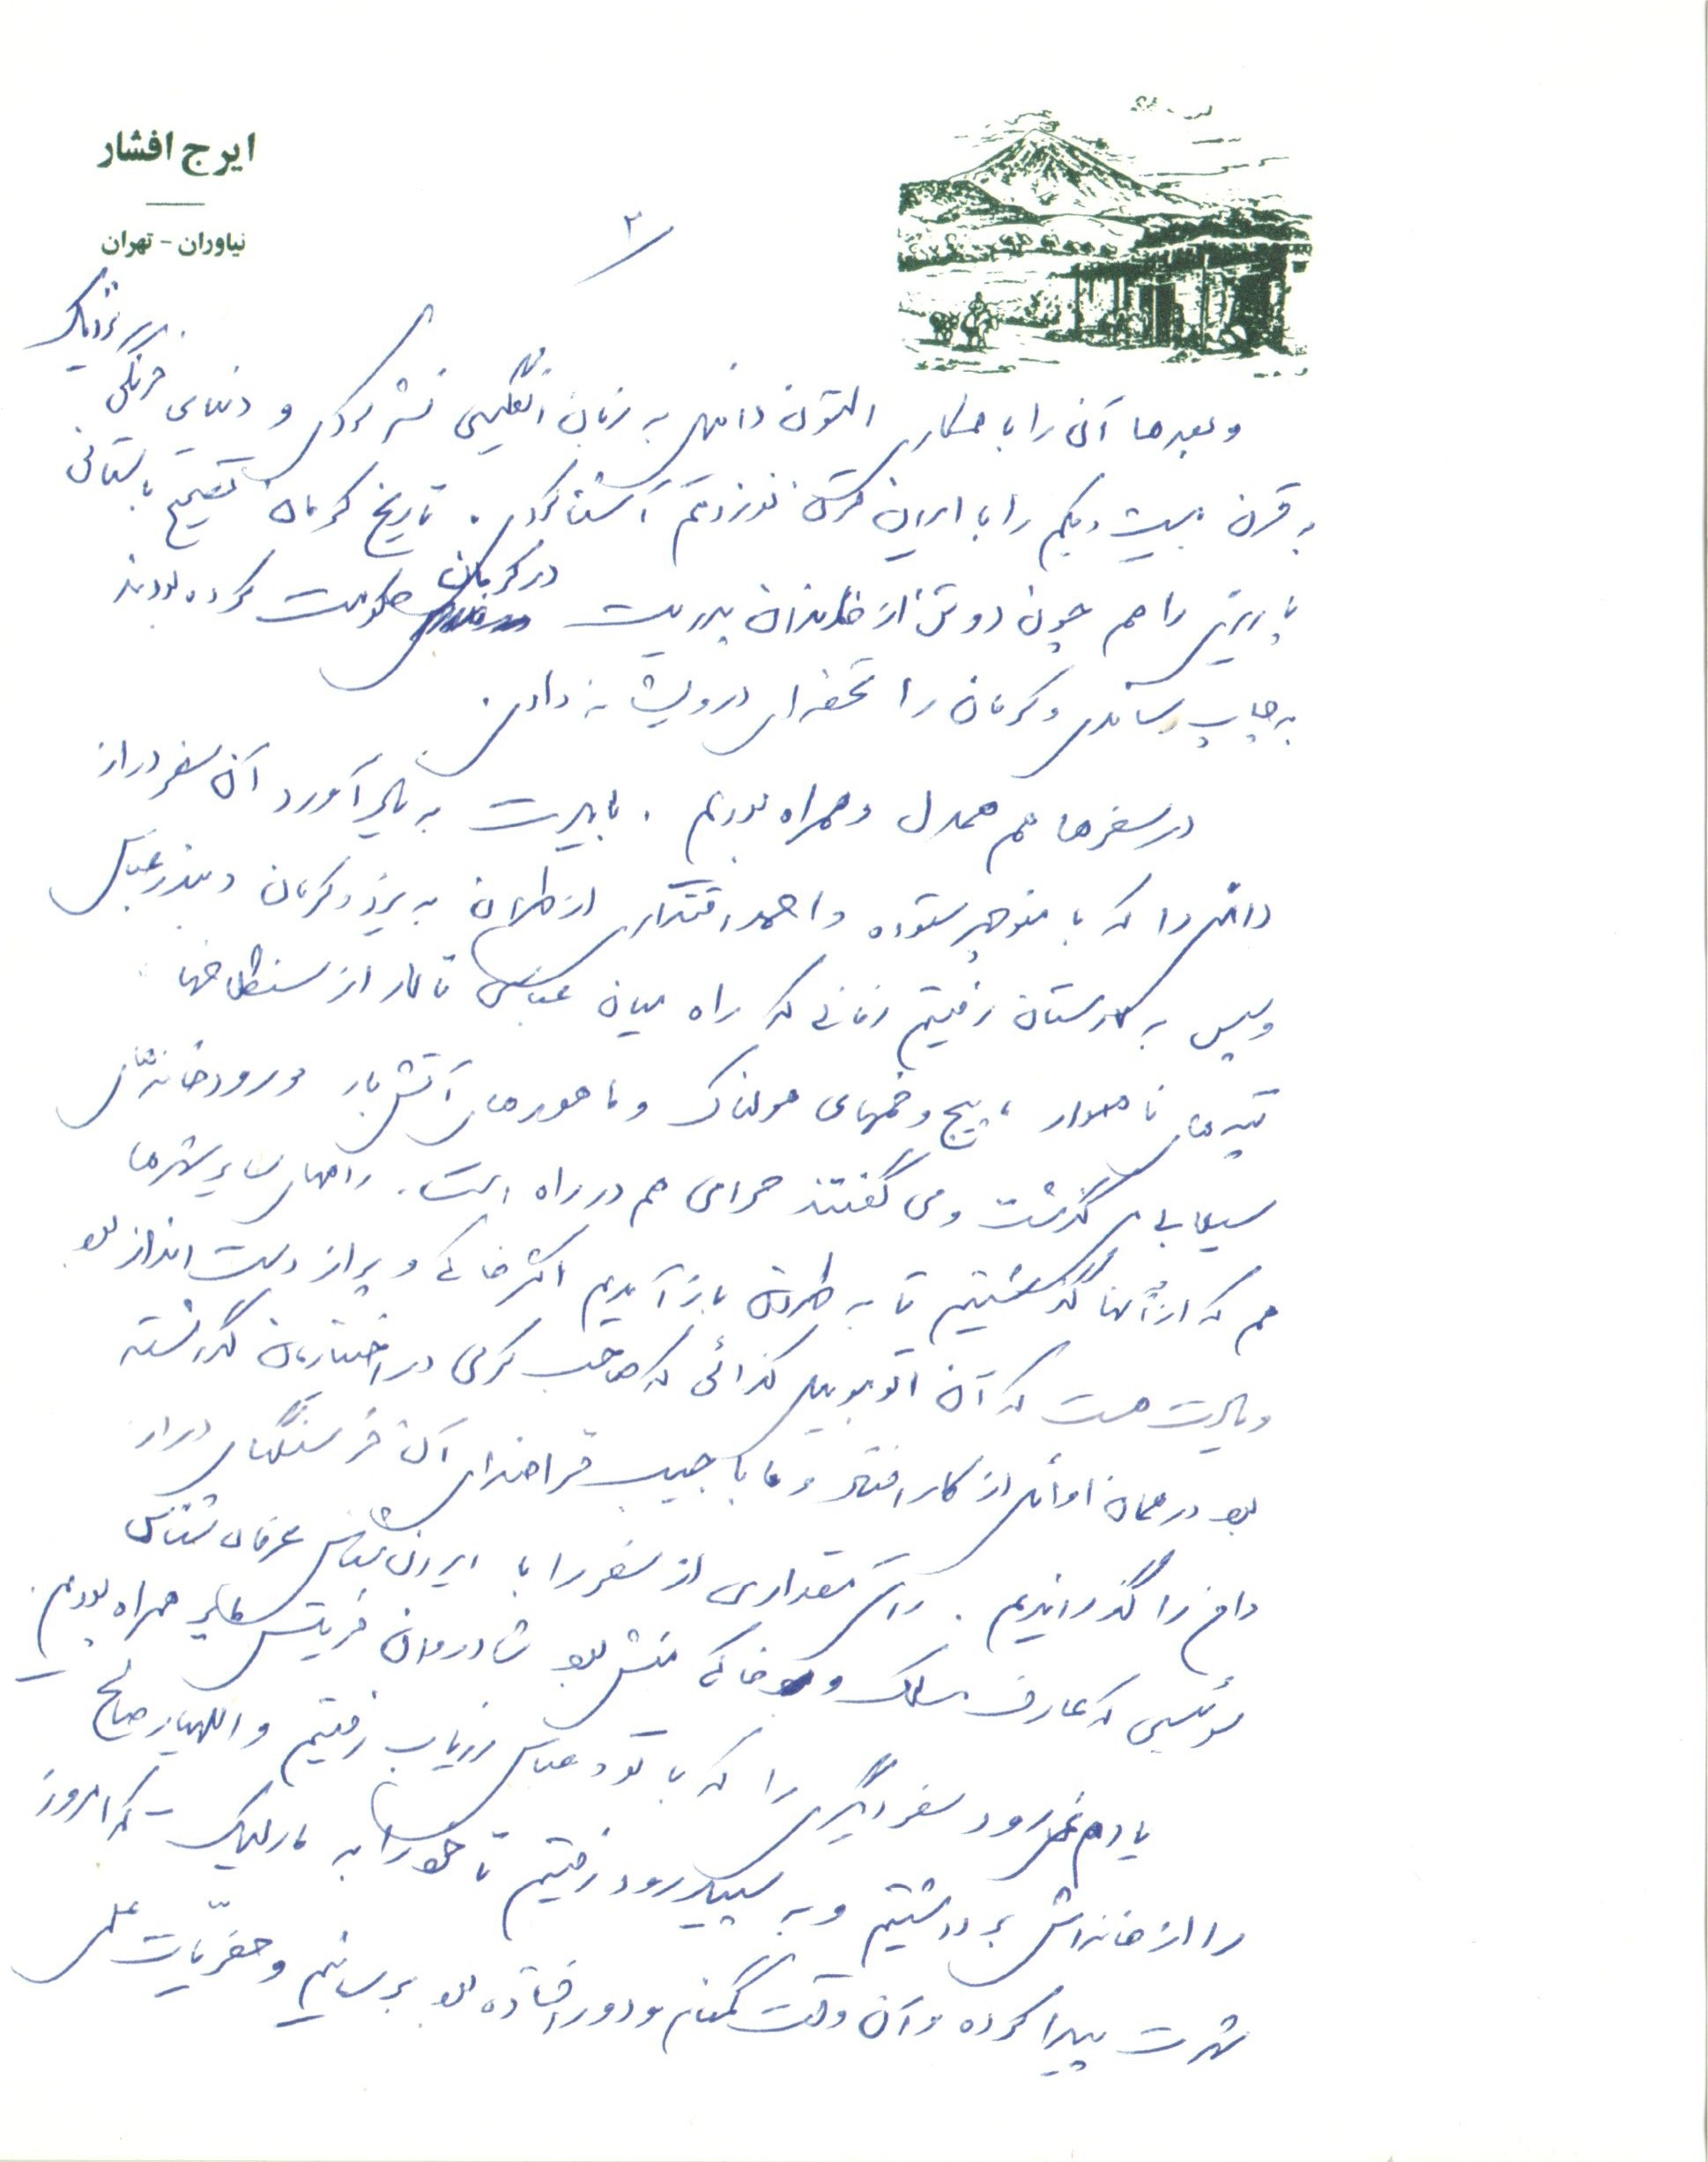 ایرج افشار
نیاوران - تهران
۲
و بعدها آن را با همکاری التون دانیل به زبان انگلیسی نشر کردی و دنیای فرنگی نزدیک
به قرن بیست و یکم را با ایران قرن نوزدهم آشنا کردی. تاریخ کرمان تصحیح باستانی
پاریزی را هم چون دو تن از خاندان پدریت در کرمان حکومت کرده بودند
به چاپ رساندی و کرمان را تحفه‌ای درویشانه دادی.
در سفرها هم همدل و همراه بودیم. باید یادت به یاد آورد آن سفر دراز
دامن را که با منوچهر ستوده و احمد اقتداری از طهران به یزد و کرمان و بندرعباس
و سپس به لارستان رفتیم زمانی که راه میان عباسی تا لار از سنگلاخها
تپه‌های ناهموار، پیچ و خمهای هولناک و ماهورهای آتش بار و رودخانه‌های
سیلابی می‌گذشت و می‌گفتند حرامی هم در راه است. راههای سایر شهرها
هم که از آنها گذشتیم تا به طهران باز آمدیم اکثر خاکی و پر از دست انداز بود
و یادت هست که آن اتوموبیل کذائی که صاحب کرمی در اختیارمان گذارده
بود در همان اوائل از کار افتاد و ما با جیپ قراضه‌ای آن فرسنگهای دراز
دامن را گذراندیم. راستی مقداری از سفر را با ایران شناس عرفان شناس
سوئیسی که عارف مسلک و خاکی منش بود شادروان فریتس مایر همراه بودیم.
یادم نمی‌رود سفر دیگری را که با تو و عباس زریاب رفتیم و اللهیار صالح
را از خانه‌اش برداشتیم و به سپیدرود رفتیم تا خود را به مارلیک که امروز
شهرت پیدا کرده و آن وقت گمنام و دور افتاده بود برسانیم و حفریات علمی